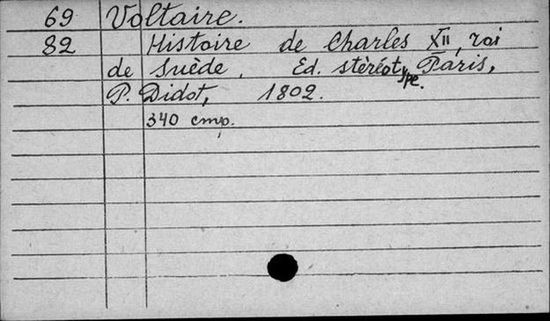 69 Voltaire.
82 Histoire de Charles XII, roi
de Suède. Ed. stéréotype. Paris,
P. Didot, 1802.
340 стр.